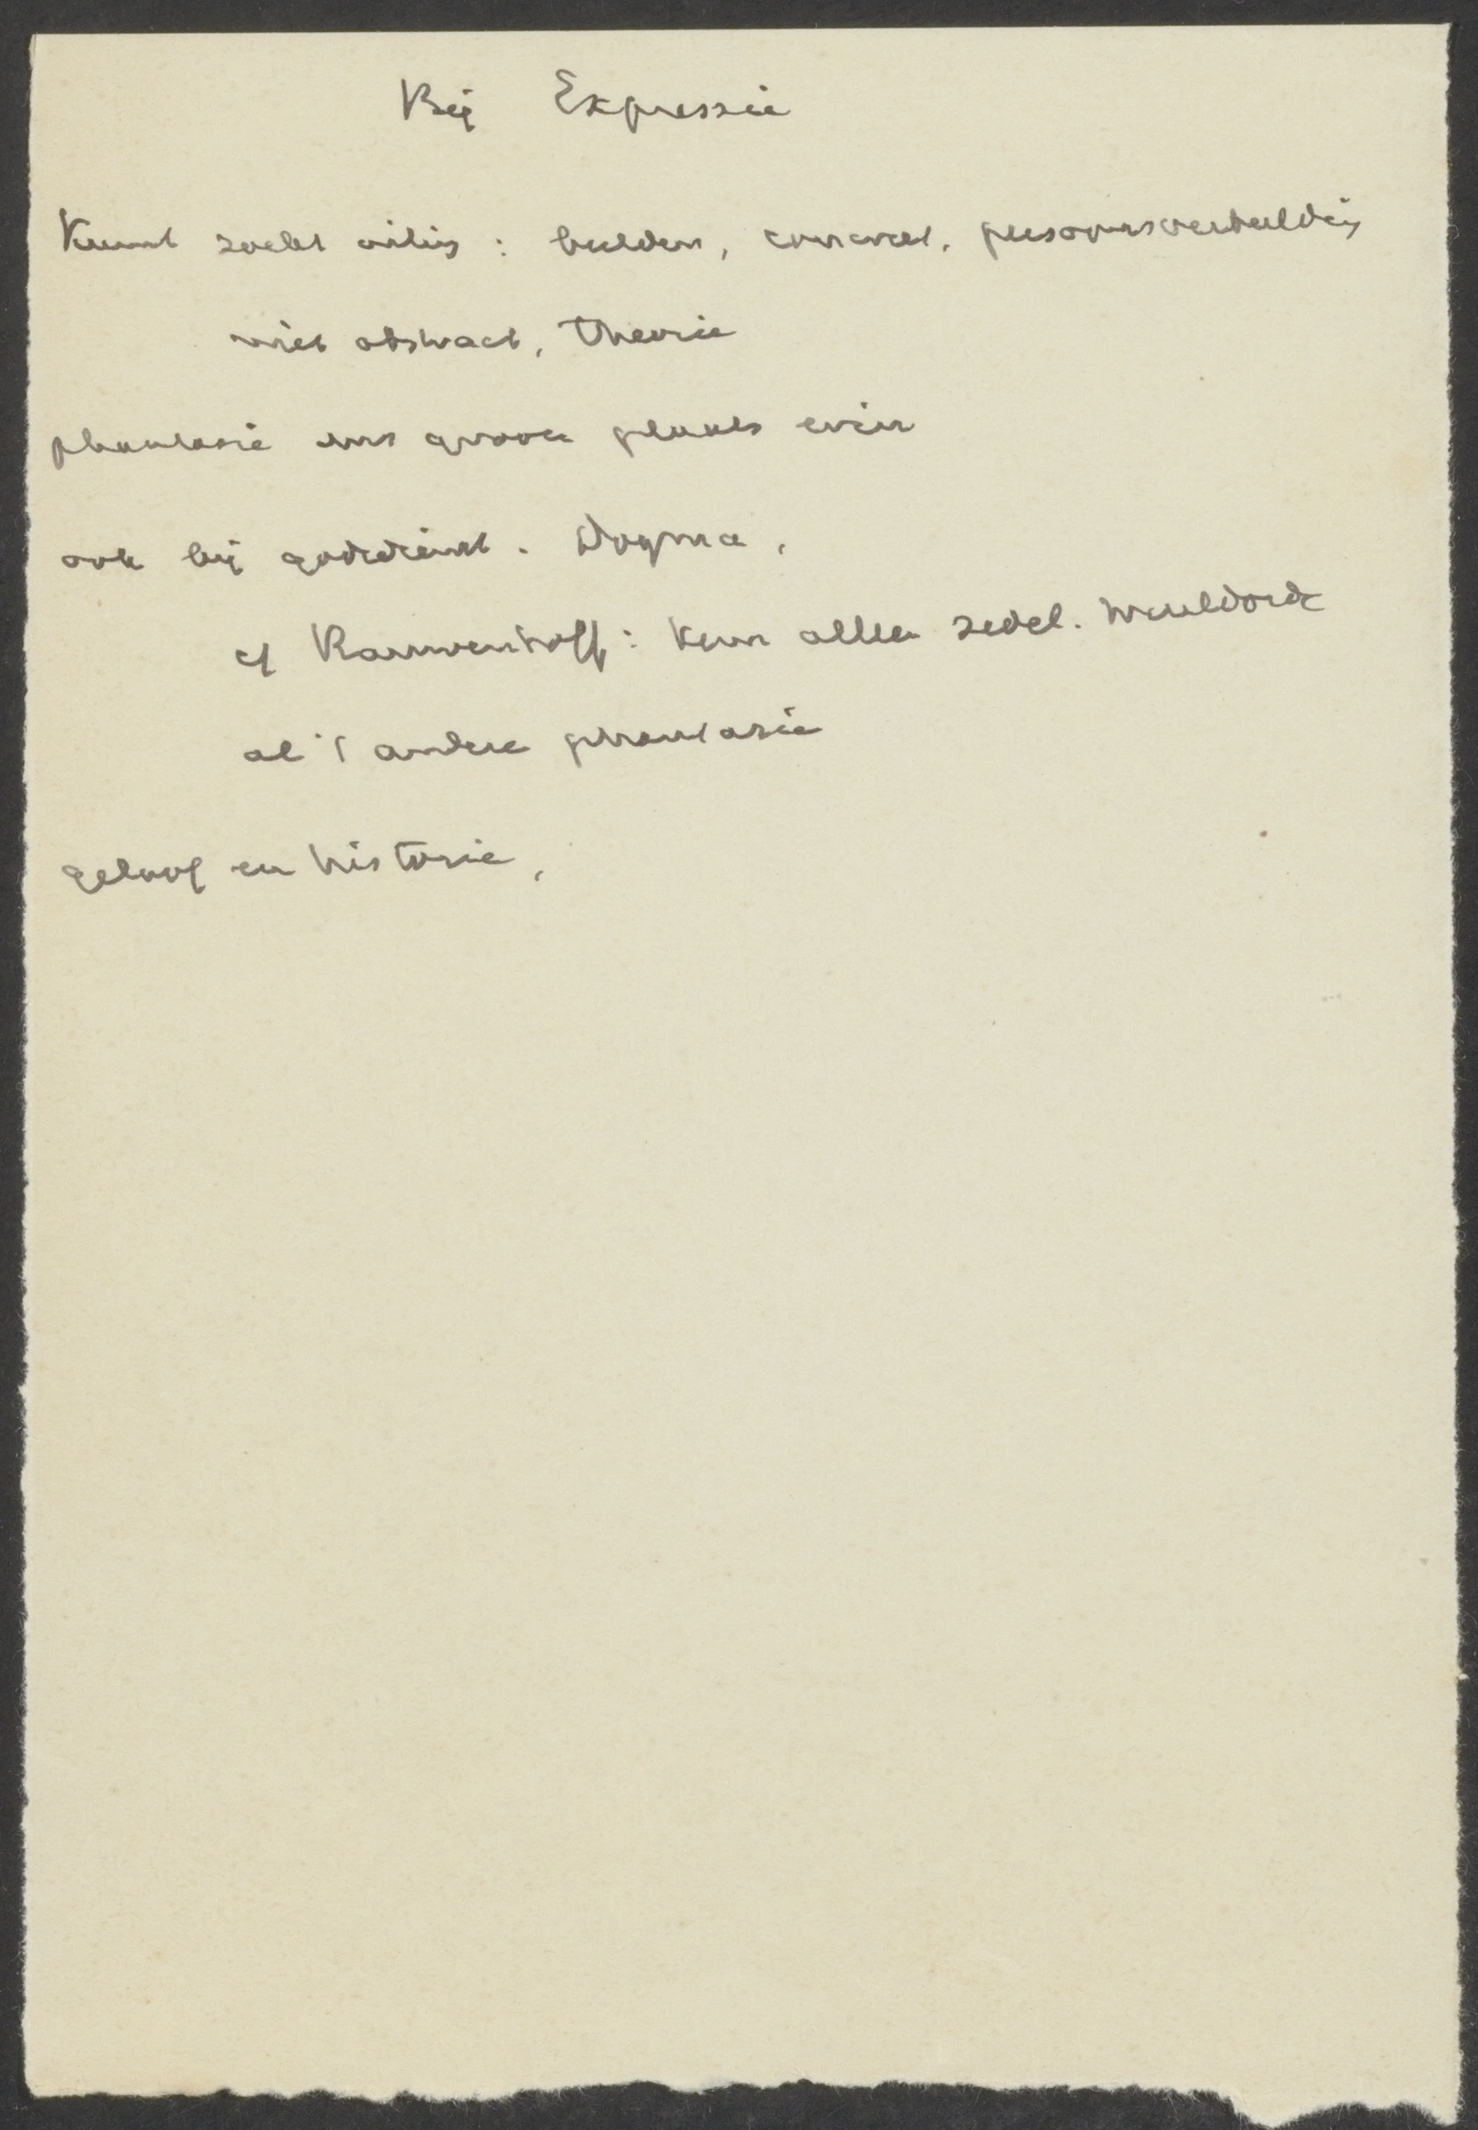 Bij Expressie
Kunst zoekt uiting : beelden, concreet, persoonsverbeelding
niet abstract, theorie
phantasie een groote plaats erin
ook bij godsdienst. Dogma,
cf Rauwenhoff : kern alleen zedel. wereldorde
al 't andere phantasie
geloof en historie,